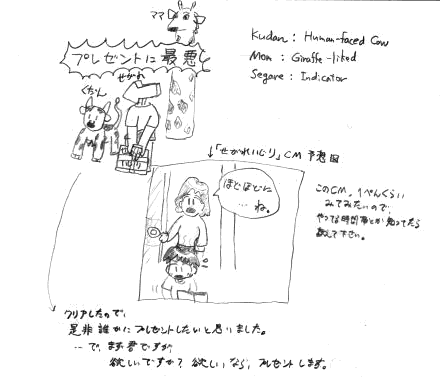 ママ
Kudan : Human-faced Cow
Mom : Giraffe-liked
Segare : Indicator
プレゼントに最悪
せがれ
くだん
↓「せがれいじり」CM予想図
ほどほどに
…ね。
このCM、1ぺんくらい
みてみたいので、
やってる時間帯とか知ってたら
教えて下さい。
クリアしたので、
是非誰かにプレゼントしたいと思いました。
…で、まず君ですが、
欲しいですか？欲しいなら、プレゼントします。